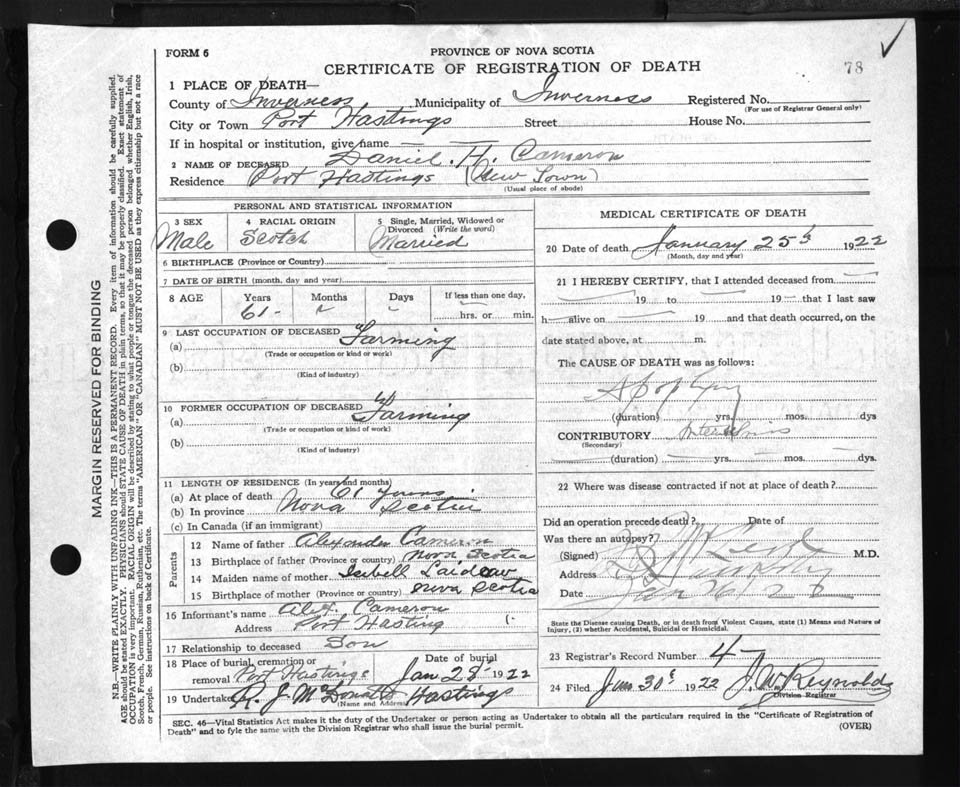 FORM 6
PROVINCE OF NOVA SCOTIA
CERTIFICATE OF REGISTRATION OF DEATH
78
1 PLACE OF DEATH—
County of Inverness Municipality of Inverness Registered No.
(For use of Registrar General only)
City or Town Port Hastings Street House No.
If in hospital or institution, give name
2 NAME OF DECEASED Daniel. H. Cameron
Residence Port Hastings (New Town)
(Usual place of abode)
PERSONAL AND STATISTICAL INFORMATION
3 SEX
Male
4 RACIAL ORIGIN
Scotch
5 Single, Married, Widowed or
Divorced (Write the word)
Married
6 BIRTHPLACE (Province or Country)
7 DATE OF BIRTH (month, day and year)
8 AGE Years Months Days If less than one day,
61 hrs. or min.
9 LAST OCCUPATION OF DECEASED
(a) Farming
(Trade or occupation or kind or work)
(b)
(Kind of industry)
10 FORMER OCCUPATION OF DECEASED
(a) Farming
(Trade or occupation or kind or work)
(b)
(Kind of industry)
11 LENGTH OF RESIDENCE (In years and months)
(a) At place of death 61 years
(b) In province Nova Scotia
(c) In Canada (if an immigrant)
Parents
12 Name of father Alexander Cameron
13 Birthplace of father (Province or country) Nova Scotia
14 Maiden name of mother Isabell Laidlaw
15 Birthplace of mother (Province or country) Nova Scotia
16 Informant's name Alex. Cameron
Address Port Hasting
17 Relationship to deceased Son
18 Place of burial, cremation or
removal Port Hastings
Date of burial
Jan 28 1922
19 Undertaker R. J. McDonald Hastings
(Name and Address)
MEDICAL CERTIFICATE OF DEATH
20 Date of death January 25th 1922
(Month, day and year)
21 I HEREBY CERTIFY, that I attended deceased from
19 to 19 that I last saw
h alive on 19 and that death occurred, on the
date stated above, at m.
The CAUSE OF DEATH was as follows:
Apoplexy
(duration) yrs. mos. dys
CONTRIBUTORY
(Secondary)
(duration) yrs. mos. dys.
22 Where was disease contracted if not at place of death?
Did an operation precede death? Date of
Was there an autopsy?
(Signed) M.D.
Address
Date Jan 26/22
State the Disease causing Death, or in death from Violent Causes, state (1) Means and Nature of
Injury, (2) whether Accidental, Suicidal or Homicidal.
23 Registrar's Record Number 4
24 Filed Jan 30th 1922 J. W. Reynolds
Division Registrar
SEC. 46—Vital Statistics Act makes it the duty of the Undertaker or person acting as Undertaker to obtain all the particulars required in the "Certificate of Registration of
Death" and to fyle the same with the Division Registrar who shall issue the burial permit.
(OVER)
MARGIN RESERVED FOR BINDING
N.B.—WRITE PLAINLY WITH UNFADING INK—THIS IS A PERMANENT RECORD. Every item of information should be carefully supplied.
AGE should be stated EXACTLY. PHYSICIANS should STATE CAUSE OF DEATH in plain terms, so that it may be properly classified. Exact statement of
OCCUPATION is very important. RACIAL ORIGIN will be described by stating to what people or tongue the deceased person belonged whether English, Irish,
Scotch, French, German, Russian, Ruthenian, etc. The terms "AMERICAN" OR "CANADIAN" MUST NOT BE USED as they express citizenship but not a race
or people. See instructions on back of Certificate.